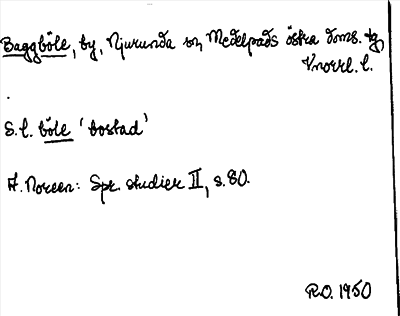 Baggböle, by, Njurunda sn, Medelpads östra doms. tg,
Vnorrl. l.
S.l. böle 'bostad'
A. Noreen: Spr. studier II, s. 80.
R.O. 1950